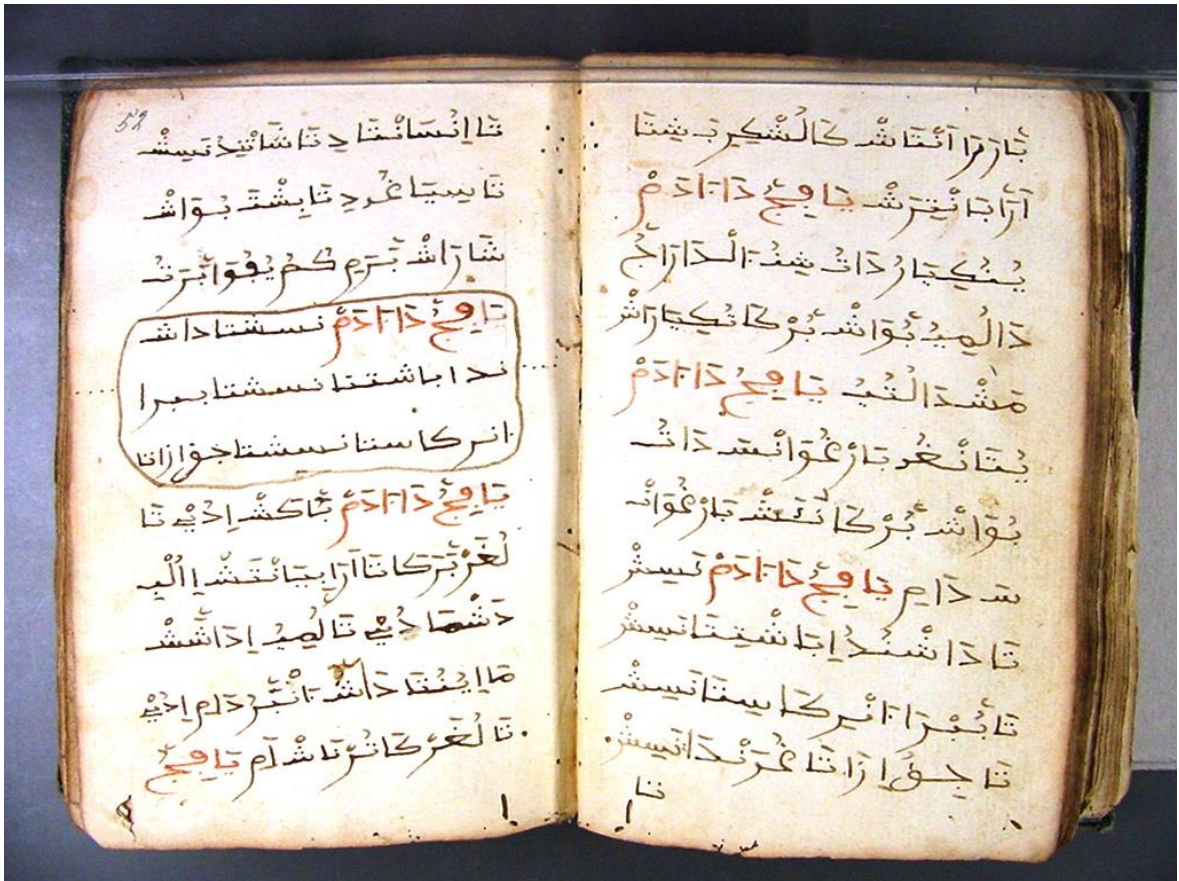 بَّارَرَا اَنْتَاشْ كَالُشْكِرِبَ شِتَا
اَرَّابَانْتِرَشْ يَا فِجُّ دَا ءَادَمْ
يُنُكِيَارُ دَاتُ شِنُ ءَالْدَارَاجُّ
دَالُمِيُ بُوَاشْ بُرْكَانُكِيَارَاشْ
مَشْدَالْتُيُ يَا فِجُّ دَا ءَادَمْ
يُتَانْغُ بَارْغُوَانْسَ دَاتُ
بُوَاشْ بُرْكَا نُتَشْ بَارْغُوَانْ
سَ دَامِ يَا فِجُّ دَا ءَادَمْ نَسِشْ
تَا دَاشْنُدُ اِبَاشْتِتَا نَسِشْ
تَابُبْرَا اِانْرِكَاسِتَا نَسِشْ
تَا جِوُ اِرَازَاتَا غُرَنْدَا نَسِشْ
تا
52
تَا اِنْسَانْتَا دِ تَاشَاتِيدُ نَسِشْ
تَا سِيَاغُ دِ تَا بِشْتَ بُوَاشْ
شَارَاشْ بَّرَمِ كُمُ يُفُوَا بَّرَتُ
يَا فِجُّ دَا ءَادَمْ نسشتا داش
ندا اباشتتا نسشتا ببرا
انركاستا نسشتا جوا ارازاتا
يَا فِجُّ دَا ءَادَمْ بَّاكَشْ اِدُبِّ تَا
لُغَرْ بَّرَكَاتَا اَرَّابِيَانْتَشْ اِاُلْبِ
دَشْمَا دُبِّ تَالُمِيُ اِدَاشَّشْ
مَا اِيُنُتَا دَاشُّ ءَانْبَّرُ دَامِ اِدُبِّ
تَا لُغَرْ كَانُرَّتَاشْ اَمِ يَا فِجُّ